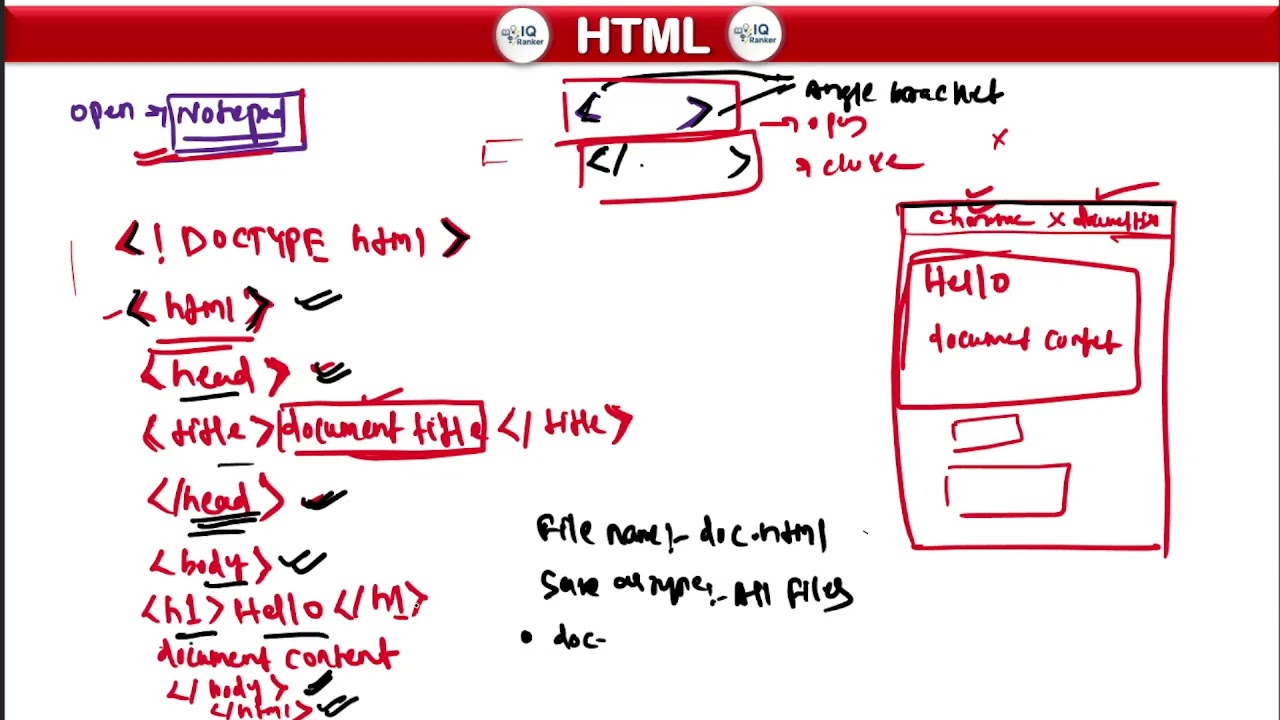 IQ Ranker HTML IQ Ranker
open → Notepad
< > Angle bracket
→ open
</ > → close
x
<! DOCTYPE html>
<html>
<head>
<title> document title </title>
</head>
<body>
<h1> Hello </h1>
document content
</body>
</html>
chrome x
Hello
document contet
File name:- doc.html
Save as type:- All Files
• doc-